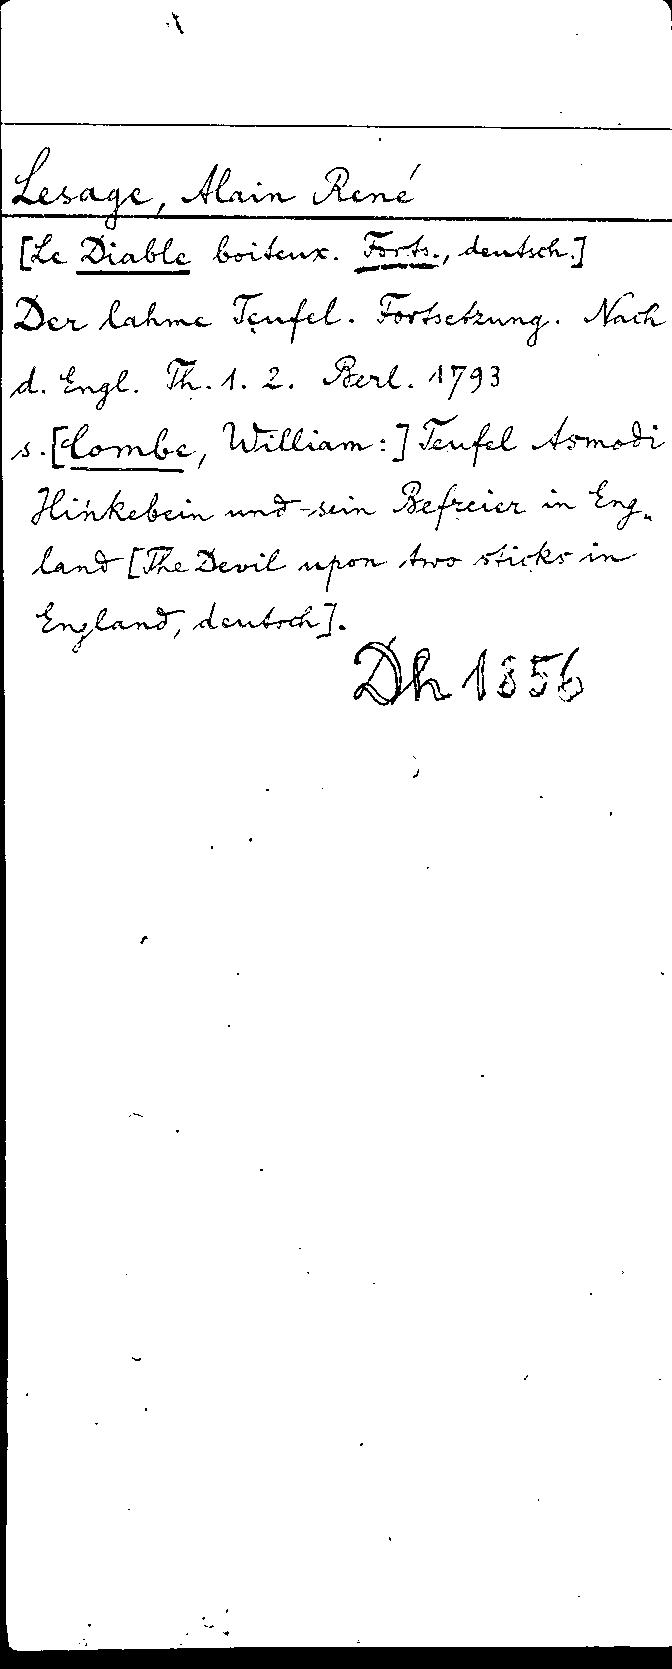 Lesage, Alain René
[Le Diable boiteux. Forts., deutsch.]
Der lahme Teufel. Fortsetzung. Nach
d. Engl. Th. 1. 2. Berl. 1793
s. [Combe, William:] Teufel Asmodi
Hinkebein und sein Befreier in Eng-
land [The Devil upon two sticks in
England, deutsch].
Dh 1856